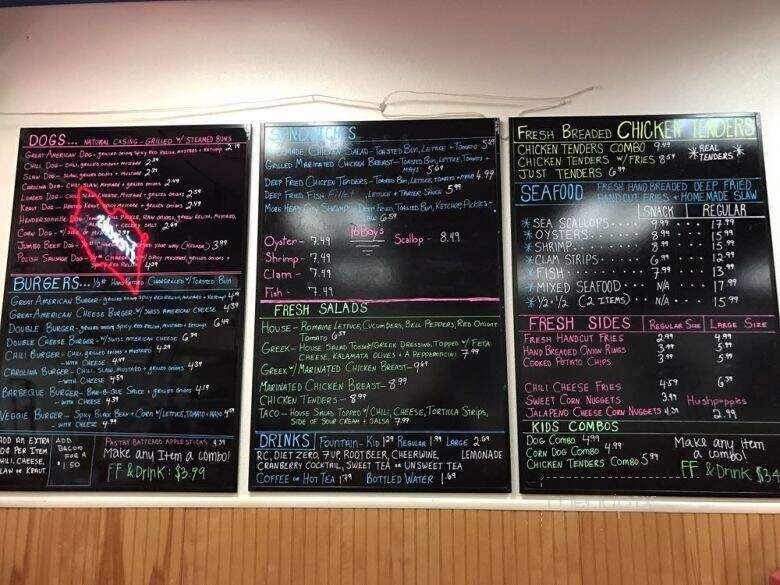 DOGS... NATURAL CASING - GRILLED W/ STEAMED BUNS
GREAT AMERICAN DOG - GRILLED ONION, SPICY RED RELISH, MUSTARD + KETCHUP 2.19
CHILI DOG - CHILI, GRILLED ONIONS + MUSTARD 2.39
SLAW DOG - SLAW, GRILLED ONIONS + MUSTARD 2.39
CAROLINA DOG - CHILI, SLAW, MUSTARD + GRILLED ONIONS 2.49
LOADED DOG - CHILI,
KRAUT DOG -
HENDERSONVILLE
CELERY SALT 2.69
CORN DOG -
JUMBO BEEF DOG YOUR WAY (CHARGED) 3.99
POLISH SAUSAGE DOG - SPICY MUSTARD, GRILLED ONIONS +
SPICY RED RELISH 4.29
BURGERS... 1/3# HAND PATTIED CHARGRILLED W/ TOASTED BUN
GREAT AMERICAN BURGER - GRILLED ONIONS, SPICY RED RELISH, MUSTARD + KETCHUP 4.19
GREAT AMERICAN CHEESE BURGER - W/ SWISS AMERICAN CHEESE 4.39
DOUBLE BURGER - GRILLED ONIONS, SPICY RED RELISH, MUSTARD + KETCHUP 6.19
DOUBLE CHEESE BURGER - W/ SWISS AMERICAN CHEESE 6.39
CHILI BURGER - CHILI, GRILLED ONIONS + MUSTARD 4.29
- WITH CHEESE 4.49
CAROLINA BURGER - CHILI, SLAW, MUSTARD + GRILLED ONIONS 4.39
- WITH CHEESE 4.59
BARBEQUE BURGER - BAR-B-QUE SAUCE + GRILLED ONIONS 4.19
- WITH CHEESE 4.39
VEGGIE BURGER - SPICY BLACK BEAN + CORN W/ LETTUCE, TOMATO + MAYO 4.79
- WITH CHEESE 4.99
ADD AN EXTRA
PER ITEM
CHILI, CHEESE,
SLAW OR KRAUT
ADD
BACON
FOR A
$1.50
PASTRY BATTERED APPLE STICKS 4.39
Make any Item a combo!
FF & Drink: $3.79
SANDWICHES
HOMEMADE CHICKEN SALAD - TOASTED BUN, LETTUCE + TOMATO 5.29
GRILLED MARINATED CHICKEN BREAST - TOASTED BUN, LETTUCE, TOMATO +
MAYO 5.69
DEEP FRIED CHICKEN TENDERS - TOASTED BUN, LETTUCE, TOMATO + MAYO 4.99
DEEP FRIED FISH FILLET - LETTUCE + TARTER SAUCE 5.99
MORE HEAD CITY SHRIMP - DEEP FRIED, TOASTED BUN, KETCHUP, PICKLES +
SLAW 6.59
PoBoys
Oyster - 7.49 Scallop - 8.49
Shrimp - 7.49
Clam - 7.49
Fish - 7.49
FRESH SALADS
HOUSE - ROMAINE LETTUCE, CUCUMBERS, BELL PEPPERS, RED ONION +
TOMATO 6.99
GREEK - HOUSE SALAD TOSSED W/ GREEK DRESSING, TOPPED W/ FETA
CHEESE, KALAMATA OLIVES + A PEPPERONCINI 7.99
GREEK W/ MARINATED CHICKEN BREAST - 9.69
MARINATED CHICKEN BREAST - 8.99
CHICKEN TENDERS - 8.99
TACO - HOUSE SALAD, TOPPED W/ CHILI, CHEESE, TORTILLA STRIPS,
SIDE OF SOUR CREAM + SALSA 7.99
DRINKS FOUNTAIN - KID 1.29 REGULAR 1.99 LARGE 2.69
RC, DIET ZERO, 7UP, ROOT BEER, CHEERWINE, LEMONADE
CRANBERRY COCKTAIL, SWEET TEA OR UNSWEET TEA
COFFEE OR HOT TEA 1.79 BOTTLED WATER 1.69
FRESH BREADED CHICKEN TENDERS
CHICKEN TENDERS COMBO 9.49 *REAL
CHICKEN TENDERS W/ FRIES 8.59 TENDERS*
JUST TENDERS 6.99
SEAFOOD FRESH HAND BREADED DEEP FRIED
HANDCUT FRIES + HOMEMADE SLAW
SNACK REGULAR
*SEA SCALLOPS 9.99 17.99
*OYSTERS 8.99 15.99
*SHRIMP 8.99 15.99
*CLAM STRIPS 6.99 12.99
*FISH 7.99 13.99
*MIXED SEAFOOD N/A 17.99
*1/2 - 1/2 (2 ITEMS) N/A 15.99
FRESH SIDES REGULAR SIZE LARGE SIZE
FRESH HANDCUT FRIES 2.99 4.99
HAND BREADED ONION RINGS 3.99 5.99
COOKED POTATO CHIPS 3.99 5.99
CHILI CHEESE FRIES 4.59 6.39
SWEET CORN NUGGETS 3.99 Hushpuppies
JALAPENO CHEESE CORN NUGGETS 4.59 2.99
KIDS COMBOS
DOG COMBO 4.99
CORN DOG COMBO 4.99
CHICKEN TENDERS COMBO 5.99
Make any Item
a combo!
FF & Drink